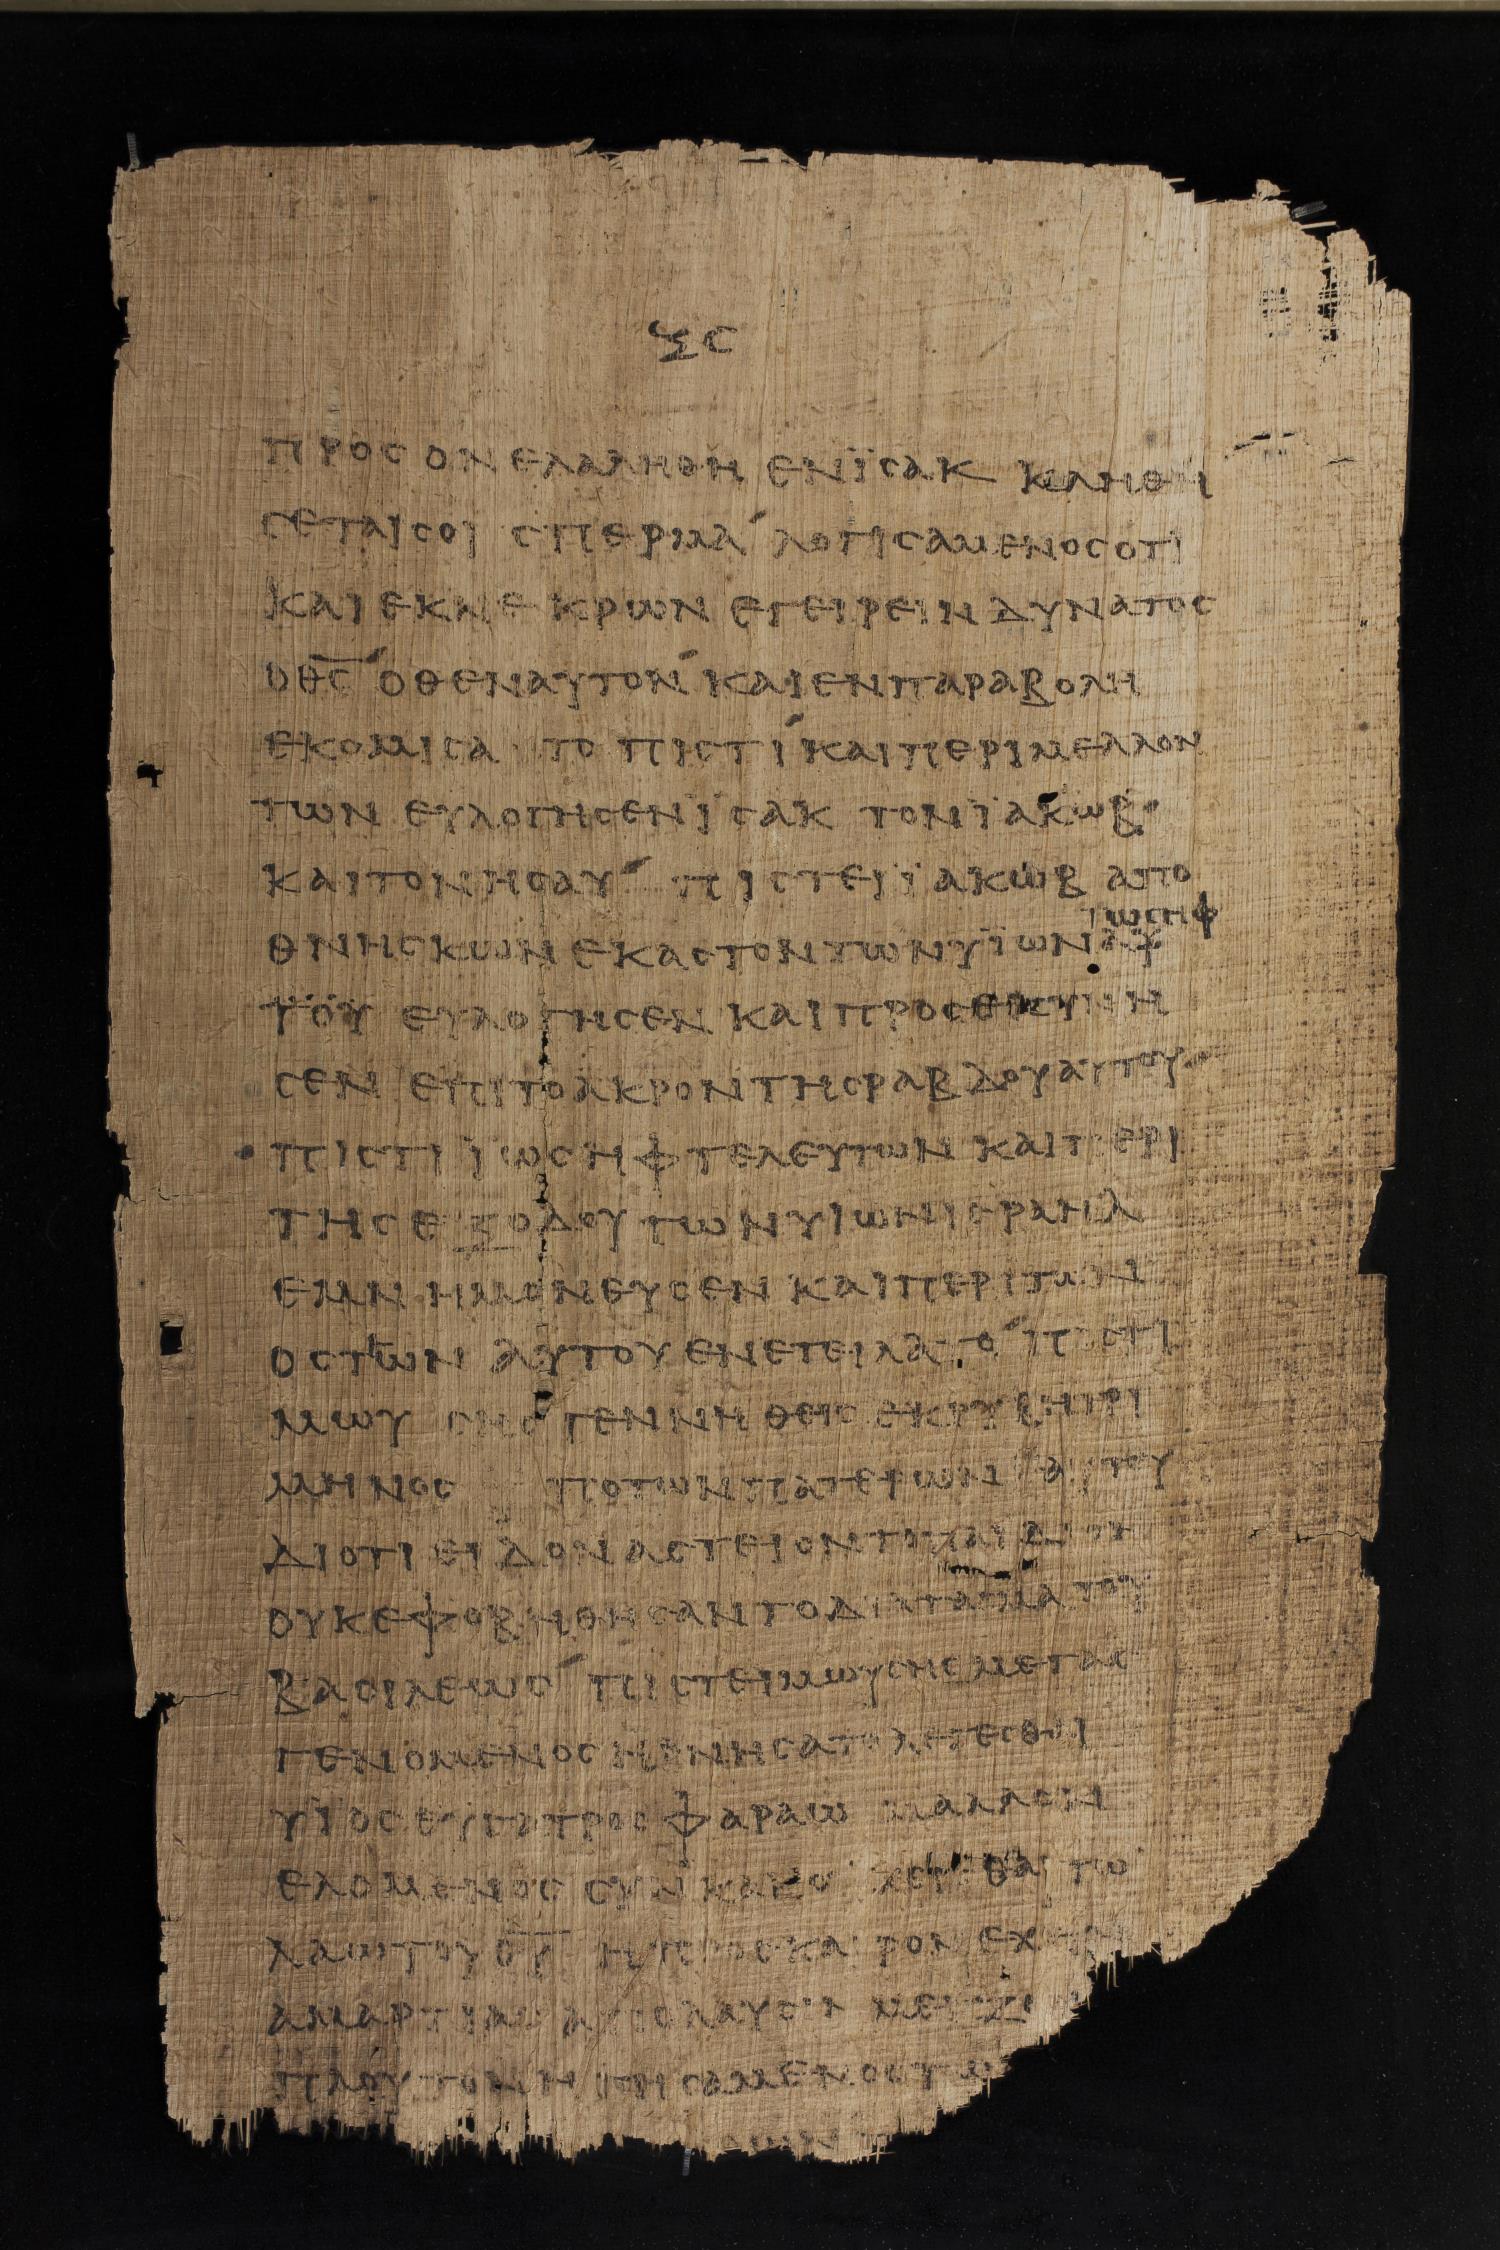 ξϛ
προσ ον ελαληθη εν ϊσακ κληθη
σεται σοι σπερμα λογισαμενοσ οτι
και εκ νεκρων εγειρειν δυνατοσ
ο θ̅σ̅ οθεν αυτον και εν παραβολη
εκομισα το πιστι και περι μελλον
των ευλογησεν ϊσακ τον ϊακωβ
και τον ησαυ πιστει ϊακωβ απο
ϊωσηφ
θνησκων εκαστον των υϊων
του ευλογησεν και προσεκυνη
σεν επι το ακρον τησ ραβδου αυτου
πιστι ϊωσηφ τελευτων και περι
τησ εξοδου των υιων ισραηλ
εμνημονευσεν και περι των
οστεων αυτου ενετειλατο πιστι
μωυσησ γεννηθεισ εκρυβη τρι
μηνοσ πο των πατερων αυτου
διοτι ειδον αστειον το παιδιον
ουκ εφοβηθησαν το διαταγμα του
βασιλεωσ πιστει μωυσησ μεγασ
γενομενοσ ηρνησατο λεγεσθαι
υϊοσ θυγατροσ φαραω μαλλον
ελομενοσ συνκακουχεισθαι τω
λαω του θ̅υ̅ η προσκαιρον εχειν
αμαρτιασ απολαυσιν μειζο
πλουτον ηγησαμενοσ τω